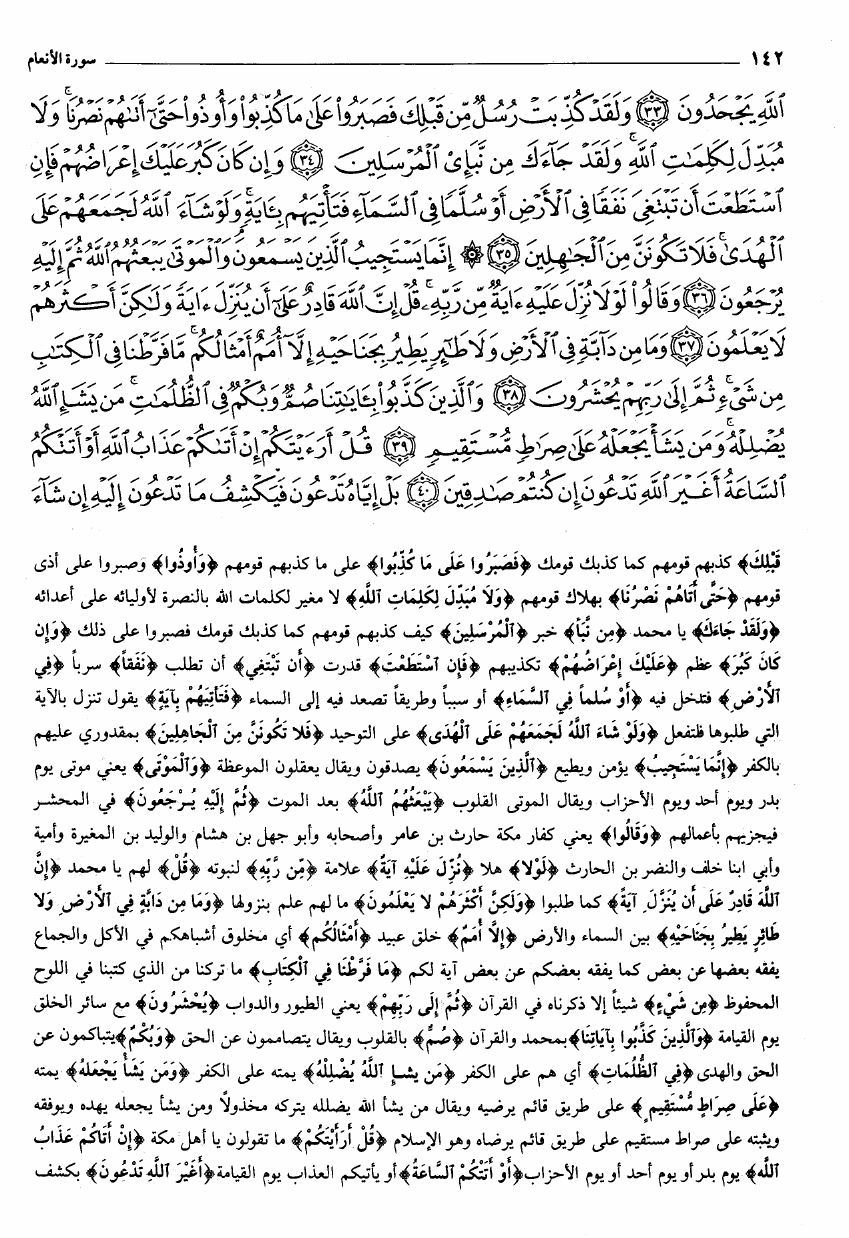 ١٤٢ سورة الأنعام
ٱللَّهِ يَجْحَدُونَ ﴿٣٣﴾ وَلَقَدْ كُذِّبَتْ رُسُلٌ مِّن قَبْلِكَ فَصَبَرُوا۟ عَلَىٰ مَا كُذِّبُوا۟ وَأُوذُوا۟ حَتَّىٰٓ أَتَىٰهُمْ نَصْرُنَا ۚ وَلَا
مُبَدِّلَ لِكَلِمَٰتِ ٱللَّهِ ۚ وَلَقَدْ جَآءَكَ مِن نَّبَإِى۟ ٱلْمُرْسَلِينَ ﴿٣٤﴾ وَإِن كَانَ كَبُرَ عَلَيْكَ إِعْرَاضُهُمْ فَإِنِ
ٱسْتَطَعْتَ أَن تَبْتَغِىَ نَفَقًا فِى ٱلْأَرْضِ أَوْ سُلَّمًا فِى ٱلسَّمَآءِ فَتَأْتِيَهُم بِـَٔايَةٍ ۚ وَلَوْ شَآءَ ٱللَّهُ لَجَمَعَهُمْ عَلَى
ٱلْهُدَىٰ ۚ فَلَا تَكُونَنَّ مِنَ ٱلْجَٰهِلِينَ ﴿٣٥﴾ ۞ إِنَّمَا يَسْتَجِيبُ ٱلَّذِينَ يَسْمَعُونَ ۘ وَٱلْمَوْتَىٰ يَبْعَثُهُمُ ٱللَّهُ ثُمَّ إِلَيْهِ
يُرْجَعُونَ ﴿٣٦﴾ وَقَالُوا۟ لَوْلَا نُزِّلَ عَلَيْهِ ءَايَةٌ مِّن رَّبِّهِۦ ۚ قُلْ إِنَّ ٱللَّهَ قَادِرٌ عَلَىٰٓ أَن يُنَزِّلَ ءَايَةً وَلَٰكِنَّ أَكْثَرَهُمْ
لَا يَعْلَمُونَ ﴿٣٧﴾ وَمَا مِن دَآبَّةٍ فِى ٱلْأَرْضِ وَلَا طَٰٓئِرٍ يَطِيرُ بِجَنَاحَيْهِ إِلَّآ أُمَمٌ أَمْثَالُكُم ۚ مَّا فَرَّطْنَا فِى ٱلْكِتَٰبِ
مِن شَىْءٍ ۚ ثُمَّ إِلَىٰ رَبِّهِمْ يُحْشَرُونَ ﴿٣٨﴾ وَٱلَّذِينَ كَذَّبُوا۟ بِـَٔايَٰتِنَا صُمٌّ وَبُكْمٌ فِى ٱلظُّلُمَٰتِ ۗ مَن يَشَإِ ٱللَّهُ
يُضْلِلْهُ وَمَن يَشَأْ يَجْعَلْهُ عَلَىٰ صِرَٰطٍ مُّسْتَقِيمٍ ﴿٣٩﴾ قُلْ أَرَءَيْتَكُمْ إِنْ أَتَىٰكُمْ عَذَابُ ٱللَّهِ أَوْ أَتَتْكُمُ
ٱلسَّاعَةُ أَغَيْرَ ٱللَّهِ تَدْعُونَ إِن كُنتُمْ صَٰدِقِينَ ﴿٤٠﴾ بَلْ إِيَّاهُ تَدْعُونَ فَيَكْشِفُ مَا تَدْعُونَ إِلَيْهِ إِن شَآءَ
قَبْلِكَ﴾ كذبهم قومهم كما كذبك قومك ﴿فَصَبَرُوا عَلَى مَا كُذِّبُوا﴾ على ما كذبهم قومهم ﴿وَأُوذُوا﴾ وصبروا على أذى
قومهم ﴿حَتَّى أَتَاهُمْ نَصْرُنَا﴾ بهلاك قومهم ﴿وَلَا مُبَدِّلَ لِكَلِمَاتِ ٱللَّهِ﴾ لا مغير لكلمات الله بالنصرة لأوليائه على أعدائه
﴿وَلَقَدْ جَاءَكَ﴾ يا محمد ﴿مِن نَّبَأِ﴾ خبر ﴿ٱلْمُرْسَلِينَ﴾ كيف كذبهم قومهم كما كذبك قومك فصبروا على ذلك ﴿وَإِن
كَانَ كَبُرَ﴾ عظم ﴿عَلَيْكَ إِعْرَاضُهُمْ﴾ تكذيبهم ﴿فَإِن ٱسْتَطَعْتَ﴾ قدرت ﴿أَن تَبْتَغِي﴾ أن تطلب ﴿نَفَقاً﴾ سرباً ﴿فِي
ٱلْأَرْضِ﴾ فتدخل فيه ﴿أَوْ سُلماً فِي ٱلسَّمَاءِ﴾ أو سبباً وطريقاً تصعد فيه إلى السماء ﴿فَتَأْتِيَهُمْ بِآيَةٍ﴾ يقول تنزل بالآية
التي طلبوها فلتفعل ﴿وَلَوْ شَاءَ ٱللَّهُ لَجَمَعَهُمْ عَلَى ٱلْهُدَى﴾ على التوحيد ﴿فَلَا تَكُونَنَّ مِنَ ٱلْجَاهِلِينَ﴾ بمقدوري عليهم
بالكفر ﴿إِنَّمَا يَسْتَجِيبُ﴾ يؤمن ويطيع ﴿ٱلَّذِينَ يَسْمَعُونَ﴾ يصدقون ويقال يعقلون الموعظة ﴿وَٱلْمَوْتَى﴾ يعني موتى يوم
بدر ويوم أحد ويوم الأحزاب ويقال الموتى القلوب ﴿يَبْعَثُهُمُ ٱللَّهُ﴾ بعد الموت ﴿ثُمَّ إِلَيْهِ يُرْجَعُونَ﴾ في المحشر
فيجزيهم بأعمالهم ﴿وَقَالُوا﴾ يعني كفار مكة حارث بن عامر وأصحابه وأبو جهل بن هشام والوليد بن المغيرة وأمية
وأبي ابنا خلف والنضر بن الحارث ﴿لَوْلَا﴾ هلا ﴿نُزِّلَ عَلَيْهِ آيَةٌ﴾ علامة ﴿مِّن رَّبِّهِ﴾ لنبوته ﴿قُلْ﴾ لهم يا محمد ﴿إِنَّ
ٱللَّهَ قَادِرٌ عَلَى أَن يُنَزِّلَ آيَةً﴾ كما طلبوا ﴿وَلَكِنَّ أَكْثَرَهُمْ لَا يَعْلَمُونَ﴾ ما لهم علم بنزولها ﴿وَمَا مِن دَابَّةٍ فِي ٱلْأَرْضِ وَلَا
طَائِرٍ يَطِيرُ بِجَنَاحَيْهِ﴾ بين السماء والأرض ﴿إِلَّا أُمَمٌ﴾ خلق عبيد ﴿أَمْثَالُكُم﴾ أي مخلوق أشباهكم في الأكل والجماع
يفقه بعضها عن بعض كما يفقه بعضكم عن بعض آية لكم ﴿مَا فَرَّطْنَا فِي ٱلْكِتَابِ﴾ ما تركنا من الذي كتبنا في اللوح
المحفوظ ﴿مِن شَيْءٍ﴾ شيئاً إلا ذكرناه في القرآن ﴿ثُمَّ إِلَى رَبِّهِمْ﴾ يعني الطيور والدواب ﴿يُحْشَرُونَ﴾ مع سائر الخلق
يوم القيامة ﴿وَٱلَّذِينَ كَذَّبُوا بِآيَاتِنَا﴾ بمحمد والقرآن ﴿صُمٌّ﴾ بالقلوب ويقال يتصاممون عن الحق ﴿وَبُكْمٌ﴾ يتباكمون عن
الحق والهدى ﴿فِي ٱلظُّلُمَاتِ﴾ أي هم على الكفر ﴿مَن يشإِ ٱللَّهُ يُضْلِلْهُ﴾ يمته على الكفر ﴿وَمَن يَشَأْ يَجْعَلْهُ﴾ يمته
﴿عَلَى صِرَاطٍ مُّسْتَقِيمٍ﴾ على طريق قائم يرضيه ويقال من يشأ الله يضلله يتركه مخذولاً ومن يشأ يجعله يهده ويوفقه
ويثبته على صراط مستقيم على طريق قائم يرضاه وهو الإسلام ﴿قُلْ أَرَأَيْتَكُمْ﴾ ما تقولون يا أهل مكة ﴿إِنْ أَتَاكُمْ عَذَابُ
ٱللَّهِ﴾ يوم بدر أو يوم أحد أو يوم الأحزاب ﴿أَوْ أَتَتْكُمْ ٱلسَّاعَةُ﴾ أو يأتيكم العذاب يوم القيامة ﴿أَغَيْرَ ٱللَّهِ تَدْعُونَ﴾ بكشف